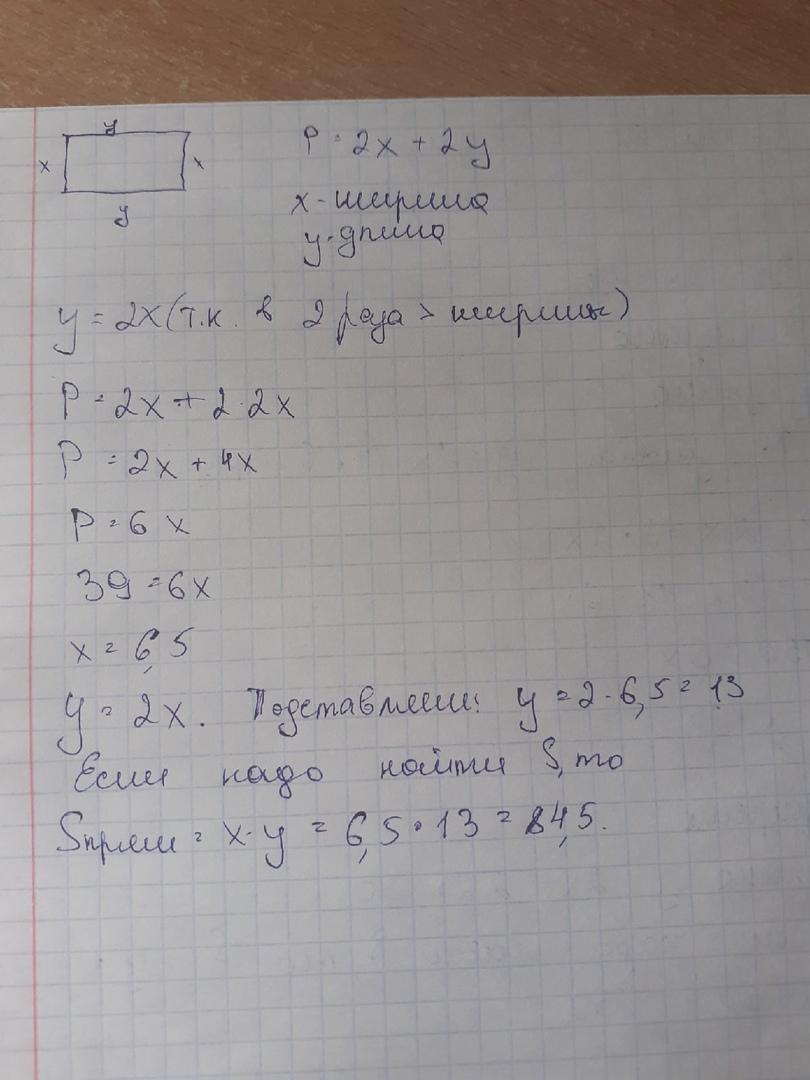 y
x
x
y
P = 2x + 2y
x - ширина
y - длина
y = 2x (т.к. в 2 раза > ширины)
P = 2x + 2·2x
P = 2x + 4x
P = 6x
39 = 6x
x = 6,5
y = 2x. Подставляем: y = 2·6,5 = 13
Если надо найти S, то
Sпрям = x·y = 6,5·13 = 84,5.